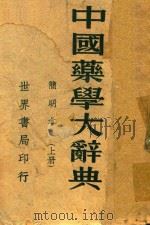 中國藥學大辭典
簡明本 (上册)
世界書局印行